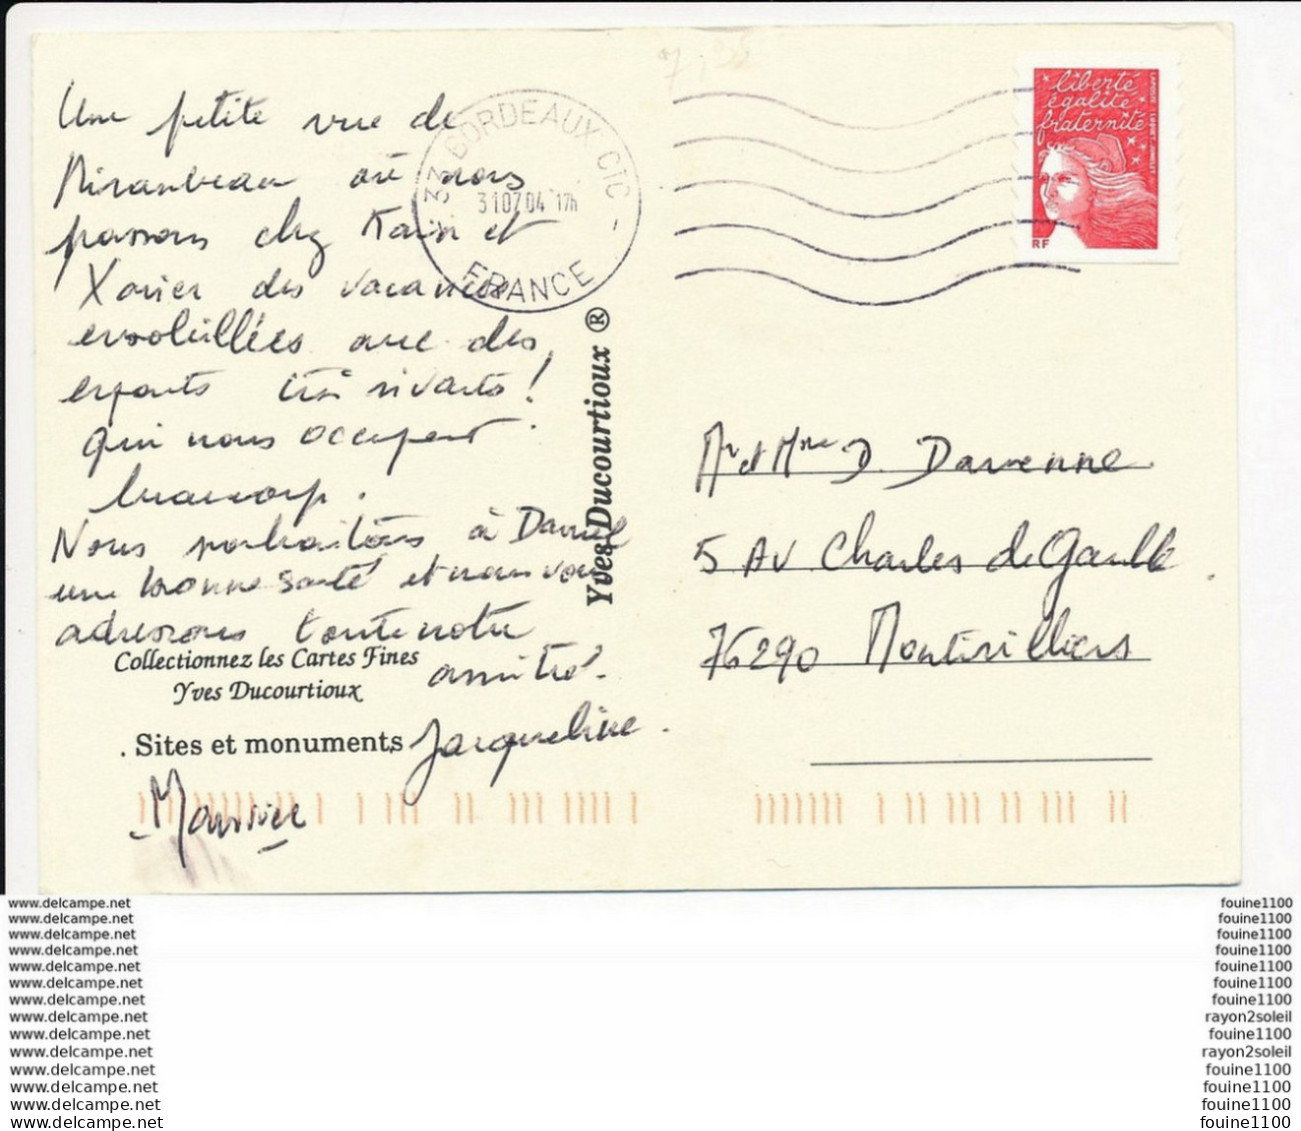 Une petite vue de
Mirambeau où nous
passons chez Karin et
Xavier des vacances
ensoleillées avec des
enfants très vivants !
qui nous occupent
beaucoup.
Nous souhaitons à Daniel
une bonne santé et nous vous
adressons toute notre
amitié.
Jacqueline
Maurice
Collectionnez les Cartes Fines
Yves Ducourtioux
. Sites et monuments
Yves Ducourtioux ®
33 BORDEAUX CTC -
310704 17h
FRANCE
liberté
égalité
fraternité
RF
Mr et Mme D. Davenne
5 AV Charles de Gaulle
76290 Montivilliers
www.delcampe.net
www.delcampe.net
www.delcampe.net
www.delcampe.net
www.delcampe.net
www.delcampe.net
www.delcampe.net
www.delcampe.net
www.delcampe.net
www.delcampe.net
www.delcampe.net
www.delcampe.net
www.delcampe.net
www.delcampe.net
fouine1100
fouine1100
fouine1100
fouine1100
fouine1100
fouine1100
fouine1100
rayon2soleil
fouine1100
rayon2soleil
fouine1100
fouine1100
fouine1100
fouine1100